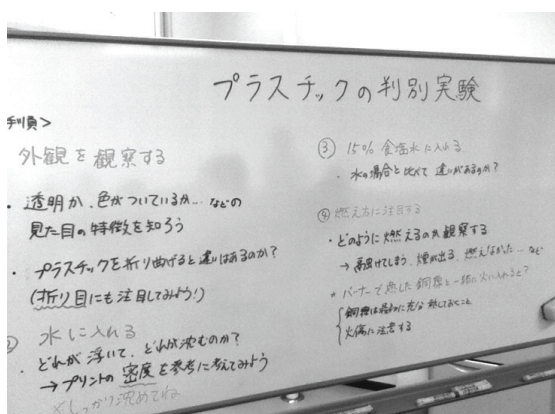 プラスチックの判別実験
手順>
外観を観察する
・透明か、色がついているか… などの
見た目の特徴を知ろう
・プラスチックを折り曲げると違いはあるのか?
(折り目にも注目してみよう!)
② 水に入れる
・どれが浮いて、どれが沈むのか?
→プリントの密度を参考に考えてみよう
※しっかり沈めてね
③ 15% 食塩水に入れる
・水の場合と比べて違いがあるのか?
④ 燃え方に注目する
・どのように燃えるのか観察する
→融けてしまう、煙が出る、燃えなかった… など
* バーナーで熱した銅線と一緒に火に入れると?
銅線は最初に充分熱しておくこと
火傷に注意する